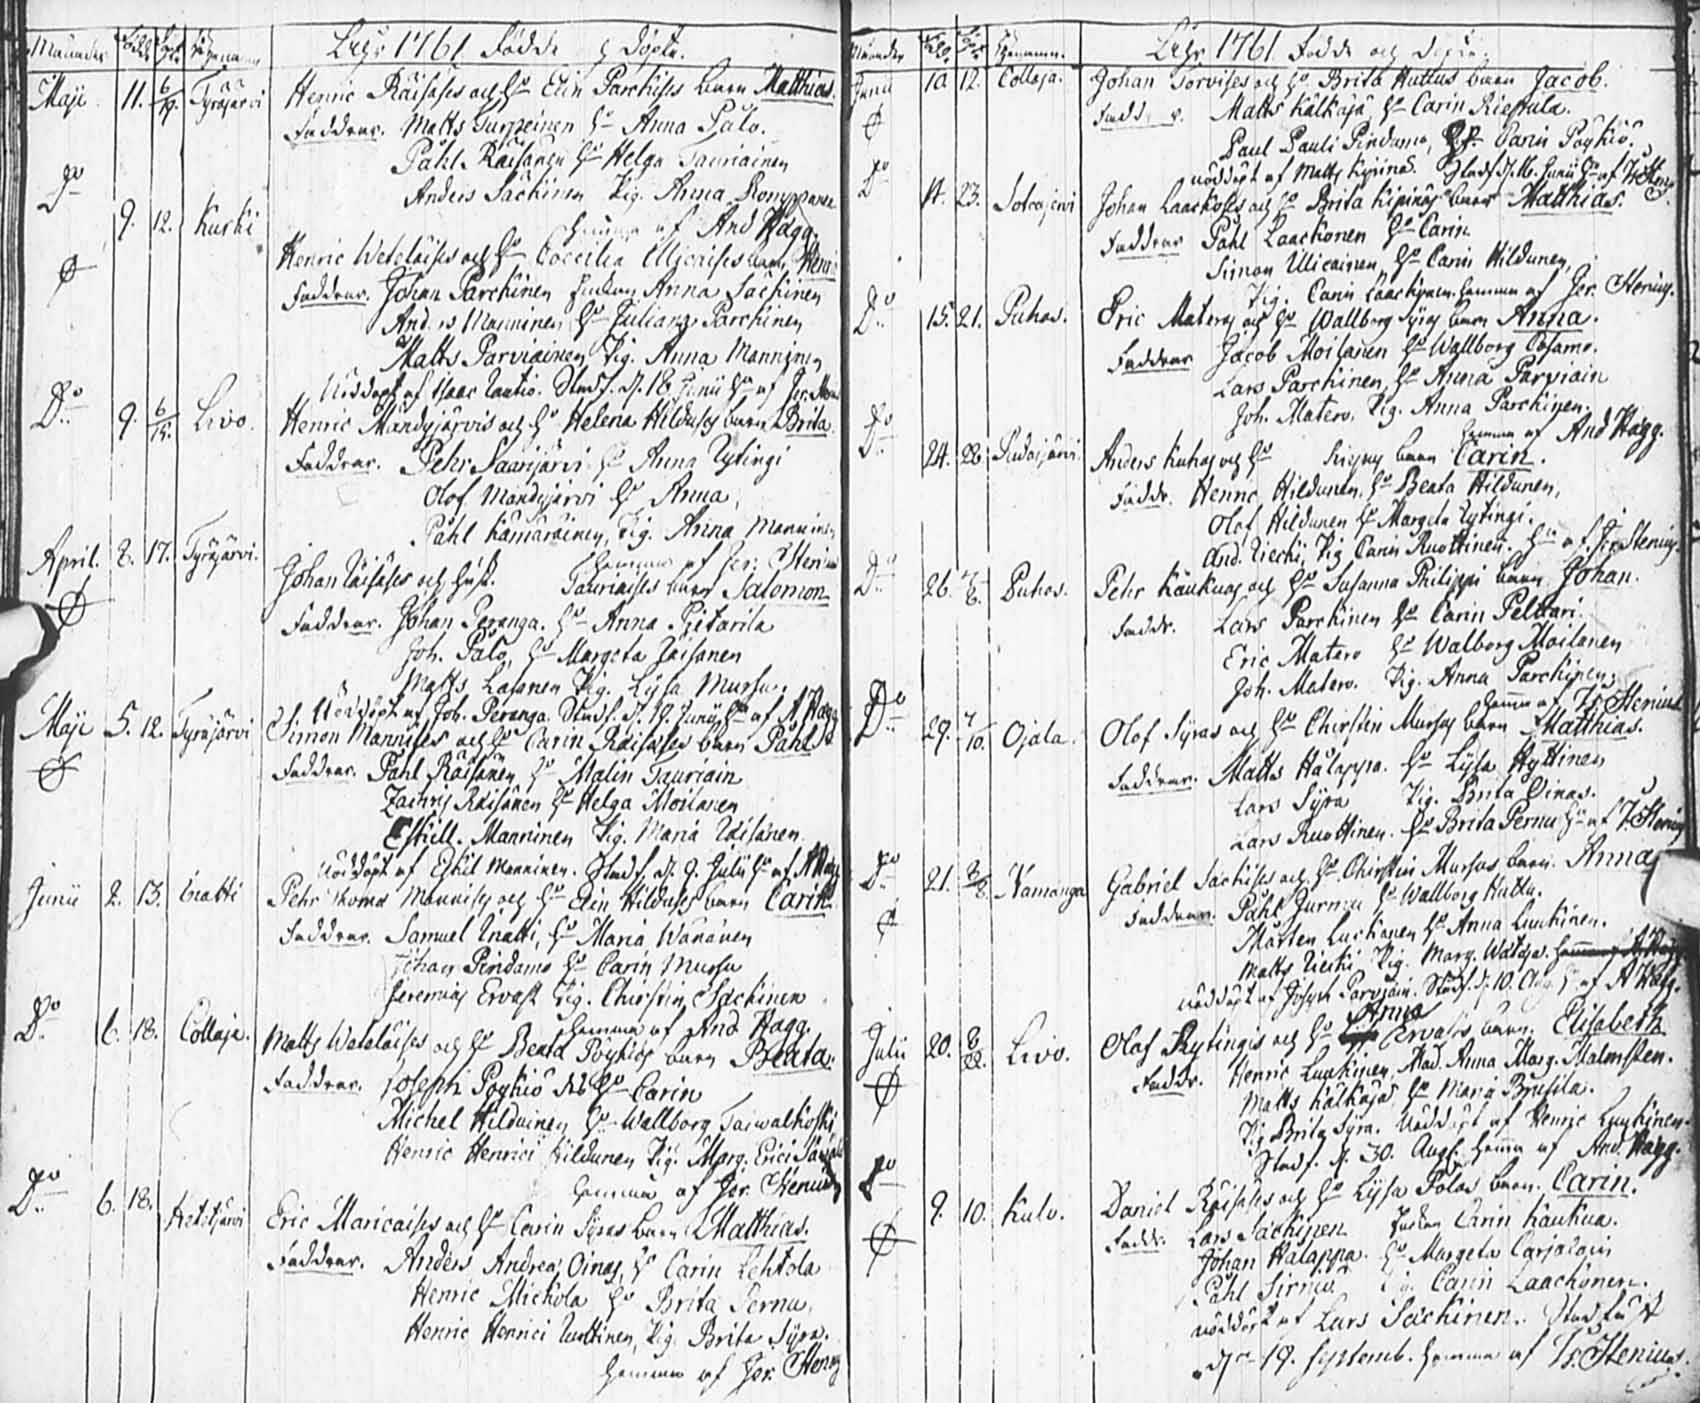 Månader Född. Döpt. Bynamn
Åhr 1761 Födde och Döpte.
Maji 11. 6/9. Tyräjärvi Henric Räisäses och Hu Elin Parckises barn Matthias.
Faddrar. Matts Turpeinen Hu Anna Palo.
Påhl Räisänen Hu Helga Tauriainen
Anders Säckinen Pig. Anna Ronppainen
hemma af And Hägg.
Do 9. 12. Kurki Henric Weteläises och Hu Coecilia Ulicaises barn Henric
Faddrar. Johan Parckinen Anna Säckinen
Anders Manninen, Hu Juliana Parckinen
Matts Parviainen Pig. Anna Manninen
Nöddöpt af Isaac Rautio. Stadf. d. 18 Junii af Jer.
Do 9. 6/15. Livo. Henric Mändyjärvis och Hu Helena Hilduses barn Brita.
Faddrar. Pehr Saarijärvi Hu Anna Rytingi
Olof Mändyjärvi Hu Anna,
Påhl Kämäräinen, Pig. Anna Manninen
hemma af Jer: Stenius
April. 8. 17. Tyräjärvi. Johan Räisäses och Hust. Tauriaises barn Salomon
Faddrar. Johan Peranga. Hu Anna Pietarila
Joh. Palo, Hu Margeta Räisänen
Matts Lasanen Pig. Lysa Mursu.
Nöddöpt af Joh. Peranga. Stadf. d. 19. Junii af A Hägg
Maji 5. 12. Tyräjärvi Simon Mannises och Hu Carin Räisäses barn Påhl
Faddrar. Påhl Räisänen, Hu Malin Tauriain
Zachris Räisänen Hu Helga Moilanen
Eskill. Manninen Pig. Maria Räisänen
Nöddöpt af Eskil Manninen. Stadf. d. 9. Julii af A Hägg
Junii 2. 13. Inatti Pehr Thomas Mannises och Hu Elin Hilduses barn Carin
Faddrar. Samuel Inatti, Hu Maria Wänänen
Johan Pindamo Hu Carin Mursu
Jeremias Ervast Pig. Chirstin Säckinen
hemma af And Hägg.
Do 6. 18. Collaja. Matts Weteläises och Hu Beata Pöykiös barn Beata.
Faddrar. Joseph Poykiö Hu Carin
Michel Hilduinen Hu Wallborg Taiwalkoski
Henric Henrici Hildunen Pig. Marg. Erici
hemma af Jer. Stenius
Do 6. 18. Hetejärvi Eric Maricaises och Hu Carin Syras barn Matthias.
Faddrar. Anders Andreæ Oinas, Hu Carin Lehtola
Henric Mickola Hu Brita Pernu,
Henric Henrici Ruottinen, Pig. Brita Syra.
hemma af Jer. Stenius
Månader Född. Döpt. Bynamn.
Åhr 1761 Födde och Döpte.
Junii 10. 12. Collaja. Johan Torvises och Hu Brita Huttus barn Jacob.
Fadd. r. Matts Kälkäjä Hu Carin Riepula.
Paul Pauli Pindamo, Carin Poykiö.
nöddöpt af Matts Kypinä. Stadf. d. 16. Junii af
Do 14. 23. Sotcajervi Johan Laackoses och Hu Brita Kipinäs barn Matthias.
Faddrar Påhl Laackonen Hu Carin
Simon Ulicainen, Hu Carin Hildunen,
Pig. Carin Laackonen. hemma af Jer. Stenius.
Do 15. 21. Puhos. Eric Materos och Hu Wallborg Syras barn Anna.
Faddrar Jacob Moilanen Hu Wallborg Cosamo.
Lars Parckinen, Hu Anna Parviain
Joh. Matero. Pig. Anna Parckinen.
hemma af And Hägg.
Do 24. 28. Pudasjärvi. Anders Kuhas och Hu barn Carin.
Faddr. Henric Hildunen, Hu Beata Hildunen,
Olof Hildunen Hu Margeta Rytingi.
And. Riecki, Pig Carin Ruottinen. af Jer. Stenius
Do 26. 7/8. Puhos. Pehr Kaukuas och Hu Susanna Philippi barn Johan.
Faddr. Lars Parckinen Hu Carin Peltari.
Eric Matero Hu Walborg Moilanen
Joh. Matero. Pig. Anna Parckinen,
hemma af Stenius
Do 29. 7/10. Ojala. Olof Syras och Hu Chirstin Mursus barn Matthias.
Faddrar. Matts Hälappa. Hu Lysa Hyttinen
Lars Syra Pig. Brita Oinas.
Lars Ruottinen. Hu Brita Pernu af Stenius
Do 21. 8/8. Nämänga Gabriel Säckises och Hu Chirstin Mursus barn. Anna
Faddrar. Påhl Jurmu Hu Wallborg Huttu.
Mårten Luckanen Hu Anna Luuckinen.
Matts Riecki Pig. Marg. Wätäjä. hemma af A Hägg
nöddöpt af Joseph Parviain. Stadf. d. 10. Aug. af A Hägg.
Julii 20. 8/22. Livo. Olof Rytingis och Hu Anna Ervasts barn. Elisabeth
Faddr. Henric Luukinen, Mad. Anna Marg. Malmsten.
Matts Kälkäjä, Hu Maria Brusila.
Pig Brita Syra. Nöddöpt af Henric Luukinen.
Stadf. d. 30. Aug. hemma af And. Hägg.
Do 9. 10. Kulo. Daniel Räisäses och Hu Lysa Polas barn. Carin.
Faddr. Lars Säckinen Carin Kaukua.
Johan Hälappa. Hu Margeta Carjalain
Påhl Sirniö Pig. Carin Laackonen.
nöddöpt af Lars Säckinen. Stadfäst
d. 19. Septemb. hemma af Stenius.